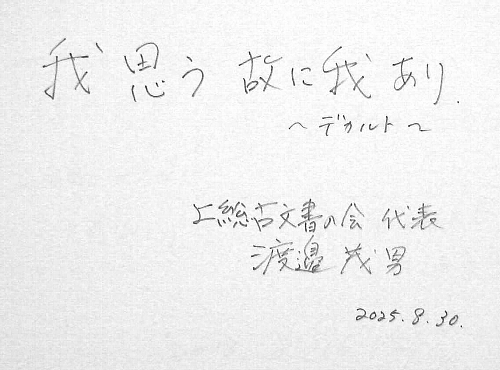 我思う 故に我あり.
~デカルト~
上総古文書の会 代表
渡邉 茂男
2025.8.30.